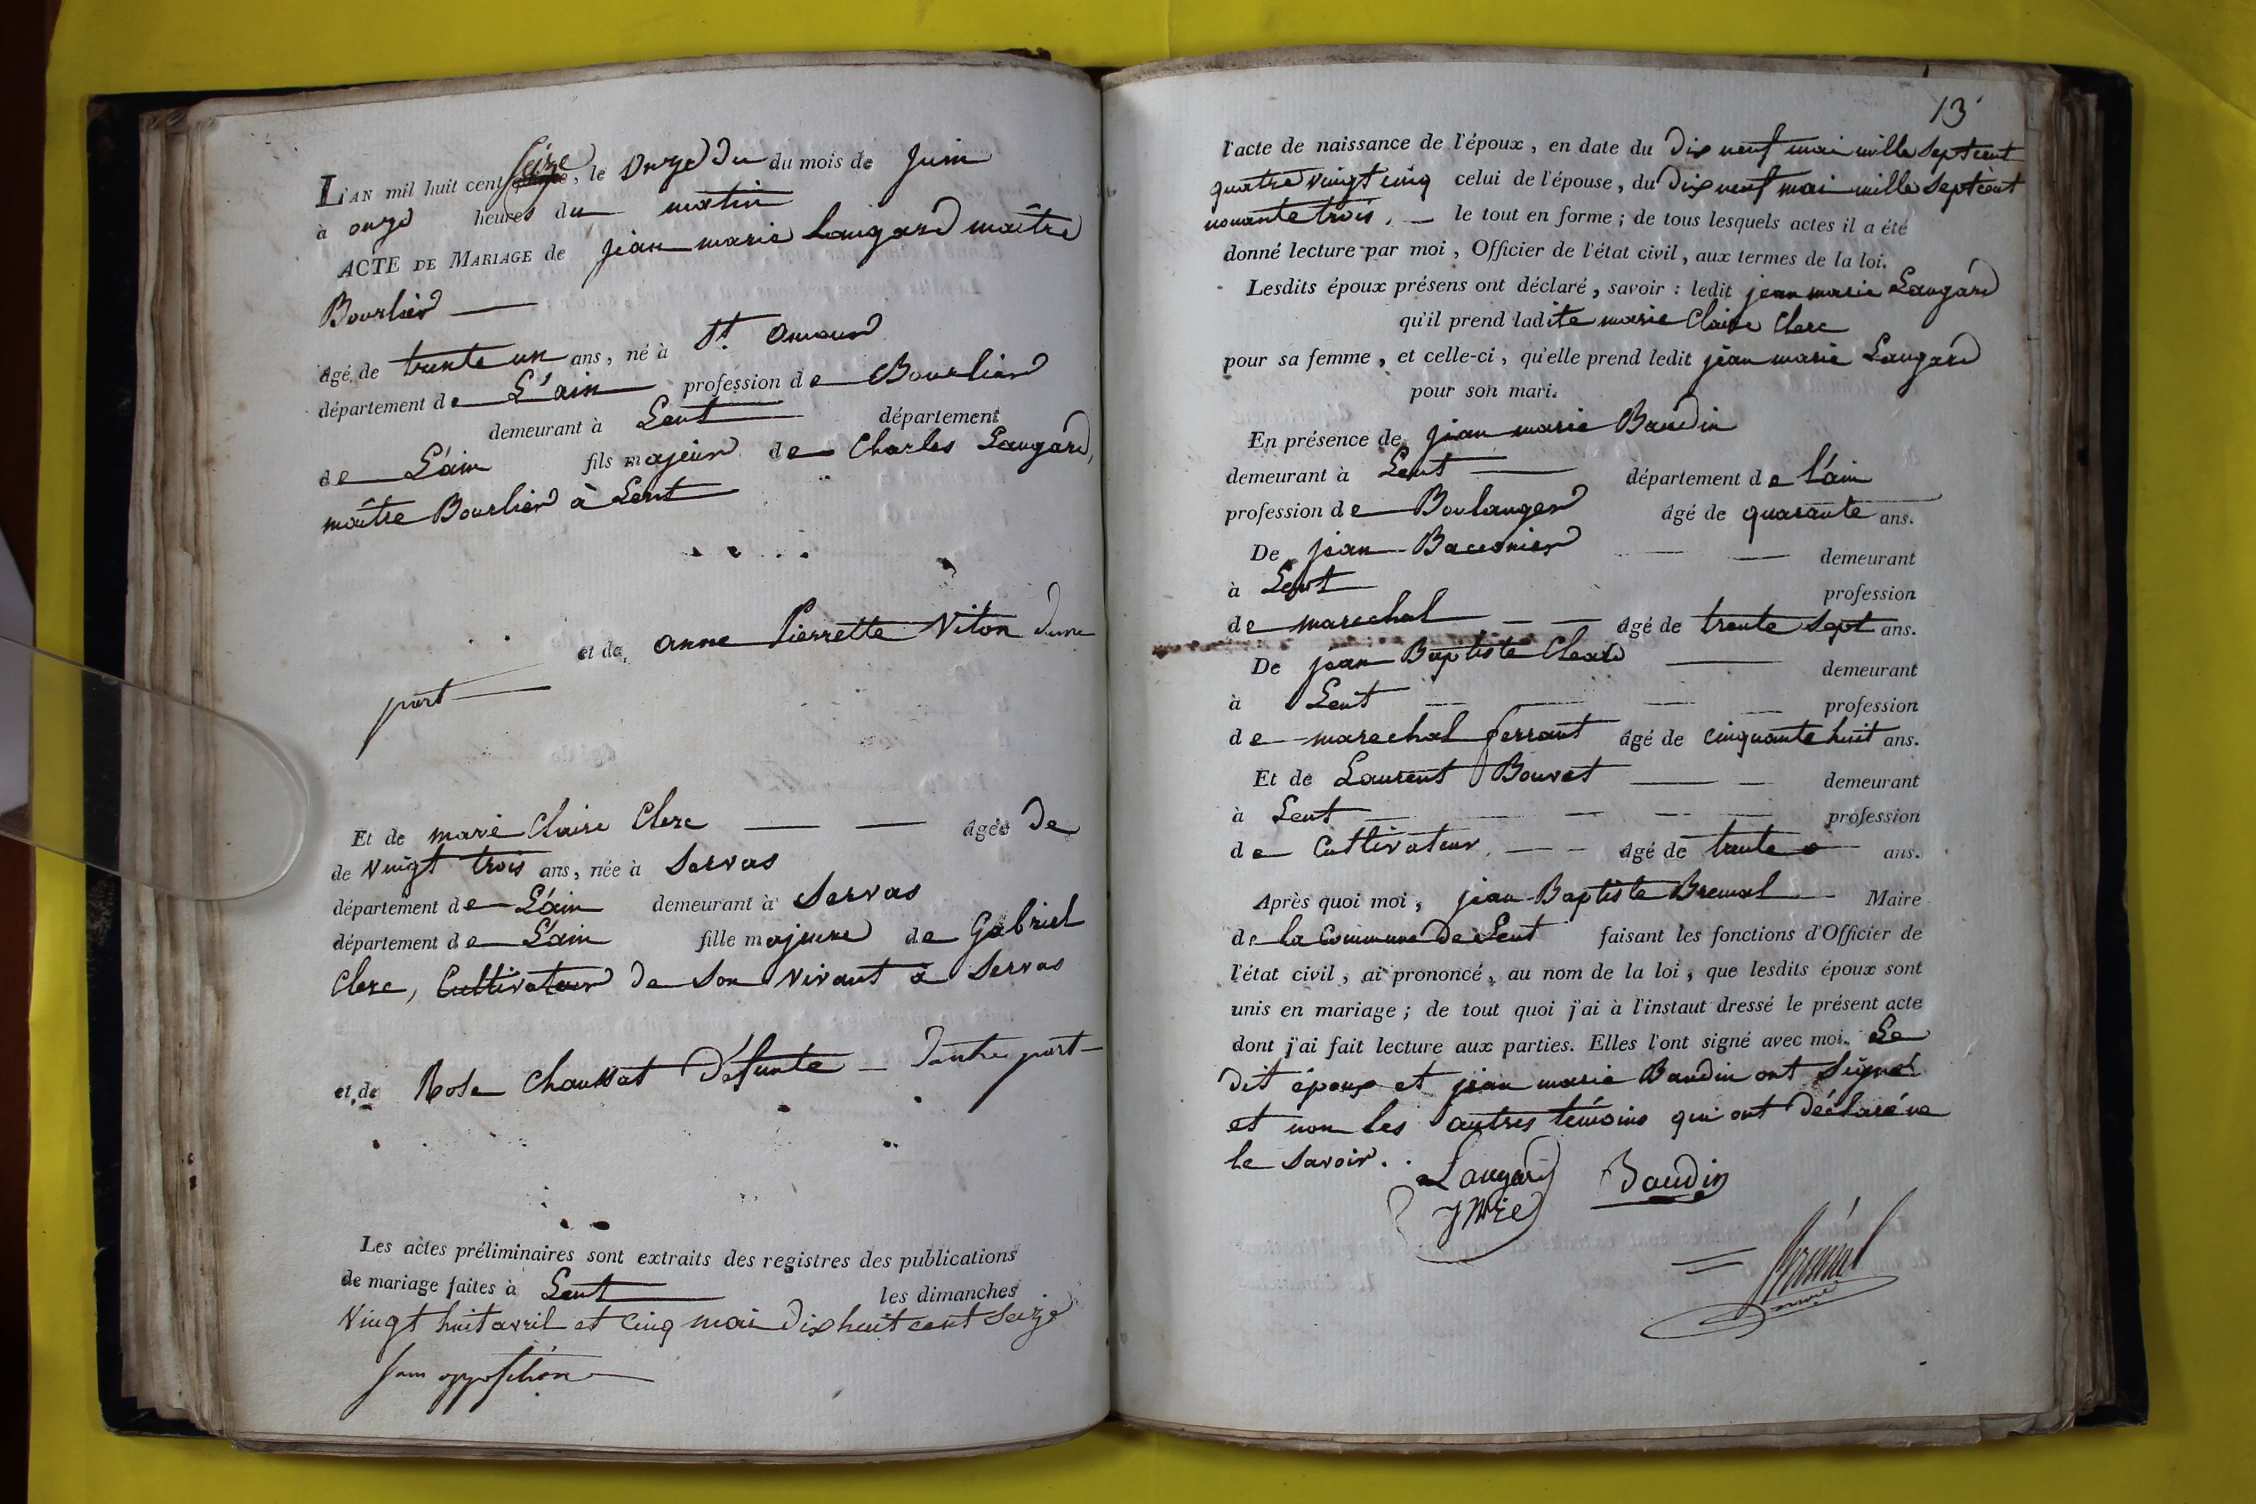 L'AN mil huit cent seize, le onze du du mois de juin
à onze heures du matin
ACTE DE MARIAGE de jean marie Laugard maître
Bourlier
âgé de trente un ans, né à St. amour
département de L'ain profession de Bourlier
demeurant à Lent département
de L'ain fils majeur de Charles Laugard,
maître Bourlier à Lent
et de anne Pierrette Viton d'une
part
Et de marie Claire Clerc âgée de
de vingt trois ans, née à Servas
département de L'ain demeurant à Servas
département de L'ain fille majeure de Gabriel
Clerc, Cultivateur de son vivant à Servas
et de Rose Chaussat défunte d'autre part
Les actes préliminaires sont extraits des registres des publications
de mariage faites à Lent les dimanches
vingt huit avril et cinq mai dix huit cent seize
sans opposition
13
l'acte de naissance de l'époux, en date du dix neuf mai mille sept cent
quatre vingt cinq celui de l'épouse, du dix neuf mai mille sept cent
nonante trois. le tout en forme; de tous lesquels actes il a été
donné lecture par moi, Officier de l'état civil, aux termes de la loi.
Lesdits époux présens ont déclaré, savoir: ledit jean marie Laugard
qu'il prend ladite marie Claire Clerc
pour sa femme, et celle-ci, qu'elle prend ledit jean marie Laugard
pour son mari.
En présence de jean marie Baudin
demeurant à Lent département de l'ain
profession de Boulanger âgé de quarante ans.
De jean Bacconier demeurant
à Lent profession
de marechal âgé de trente sept ans.
De jean Baptiste demeurant
à Lent profession
de marechal ferrant âgé de cinquante huit ans.
Et de Laurent Bouvet demeurant
à Lent profession
de Cultivateur âgé de trente ans.
Après quoi moi, jean Baptiste Bremal Maire
de la Commune de Lent faisant les fonctions d'Officier de
l'état civil, ai prononcé, au nom de la loi, que lesdits époux sont
unis en mariage; de tout quoi j'ai à l'instaut dressé le présent acte
dont j'ai fait lecture aux parties. Elles l'ont signé avec moi. Le
dit époux et jean marie Baudin ont signé
et non les autres témoins qui ont déclaré ne
le savoir.
Laugard Baudin